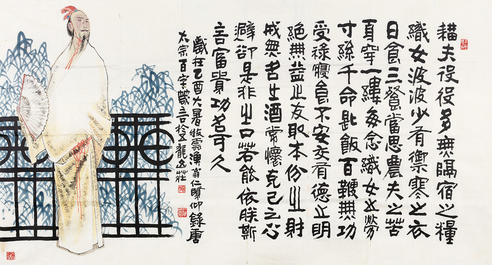 耕夫役役多無隔宿之糧
織女波波少有禦寒之衣
日食三餐當思農夫之苦
身穿一縷每念織女之勞
寸絲千命匙飯百鞭無功
受祿寢食不安交有德之朋
絕無益之友取本份之財
戒無名之酒常懷克己之心
避卻是非之口若能依朕斯
言富貴功名可久
歲在乙酉大暑 錄唐
太宗百字箴言於龍 莊